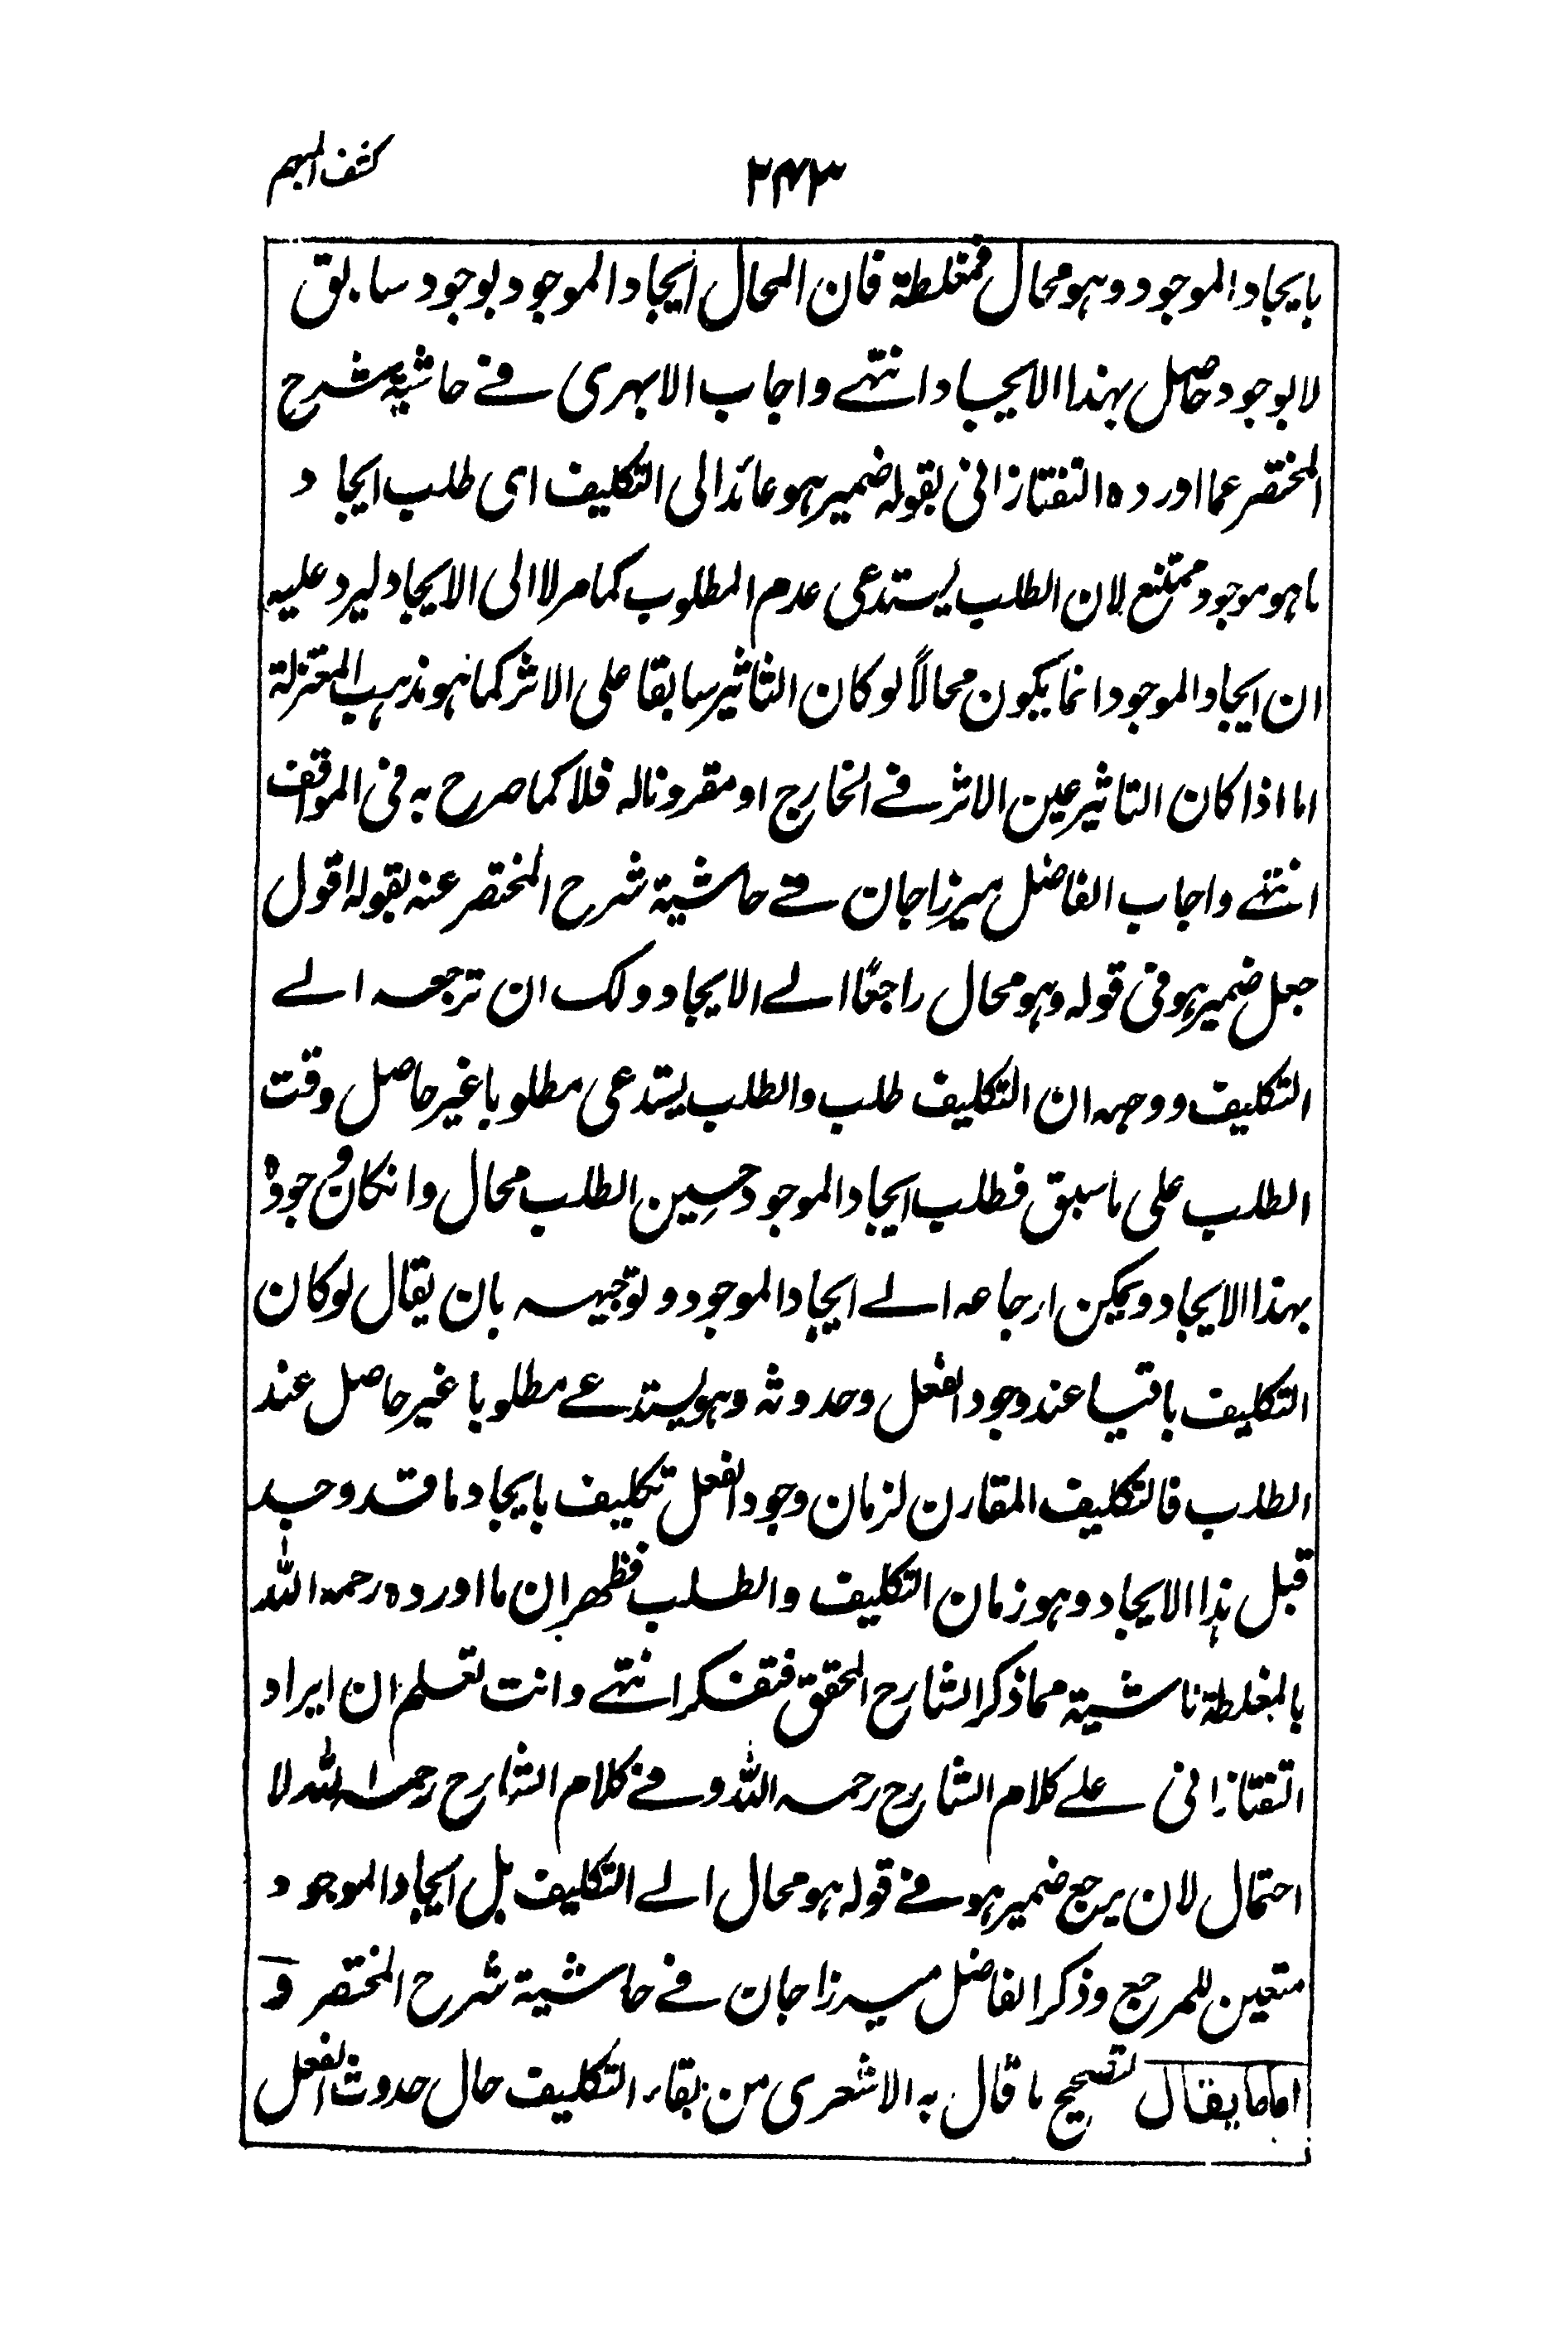 كشف المبهم
٢٤٣
بايجاد الموجود وهو محال فمغلطة فان المحال ايجاد الموجود بوجود سابق
لا بوجود حاصل بهذا الايجاد انتهى واجاب الابهري في حاشية شرح
المختصر عما اورده التفتازاني بقوله ضمير هو عائد الى التكليف اى طلب ايجاد
ما هو موجود ممتنع لان الطلب يستدعى عدم المطلوب كما مر لا الى الايجاد ليرد عليه
ان ايجاد الموجود انما يكون محالاً لو كان التاثير سابقا على الاثر كما هو مذهب المعتزلة
اما اذا كان التاثير عين الاثر في الخارج او مقرونا له فلا كما صرح به في المواقف
انتهى واجاب الفاضل ميرزا جان في حاشية شرح المختصر عنه بقوله اقول
جعل ضمير هو في قوله وهو محال راجعًا الى الايجاد ولك ان ترجعه الى
التكليف ووجهه ان التكليف طلب والطلب يستدعى مطلوبا غير حاصل وقت
الطلب على ما سبق فطلب ايجاد الموجود حين الطلب محال وانكان وجوده
بهذا الايجاد ويمكن ارجاعه الى ايجاد الموجود وتوجيهه بان يقال لو كان
التكليف باقيا عند وجود الفعل وحدوثه وهو يستدعى مطلوبا غير حاصل عند
الطلب فالتكليف المقارن لزمان وجود الفعل تكليف بايجاد ما قد وجد
قبل هذا الايجاد وهو زمان التكليف والطلب فظهر ان ما اورده رحمه الله
بالمغلطة ناشية مما ذكر الشارح المحقق فتفكر انتهى وانت تعلم ان ايراد
التفتازاني على كلام الشارح رحمه الله وفي كلام الشارح رحمه الله لا
احتمال لان يرجع ضمير هو في قوله هو محال الى التكليف بل ايجاد الموجود
متعين للمرجع وذكر الفاضل ميرزا جان في حاشية شرح المختصر و
اما ما يقال لتصحيح ما قال به الاشعرى من بقاء التكليف حال حدوث الفعل